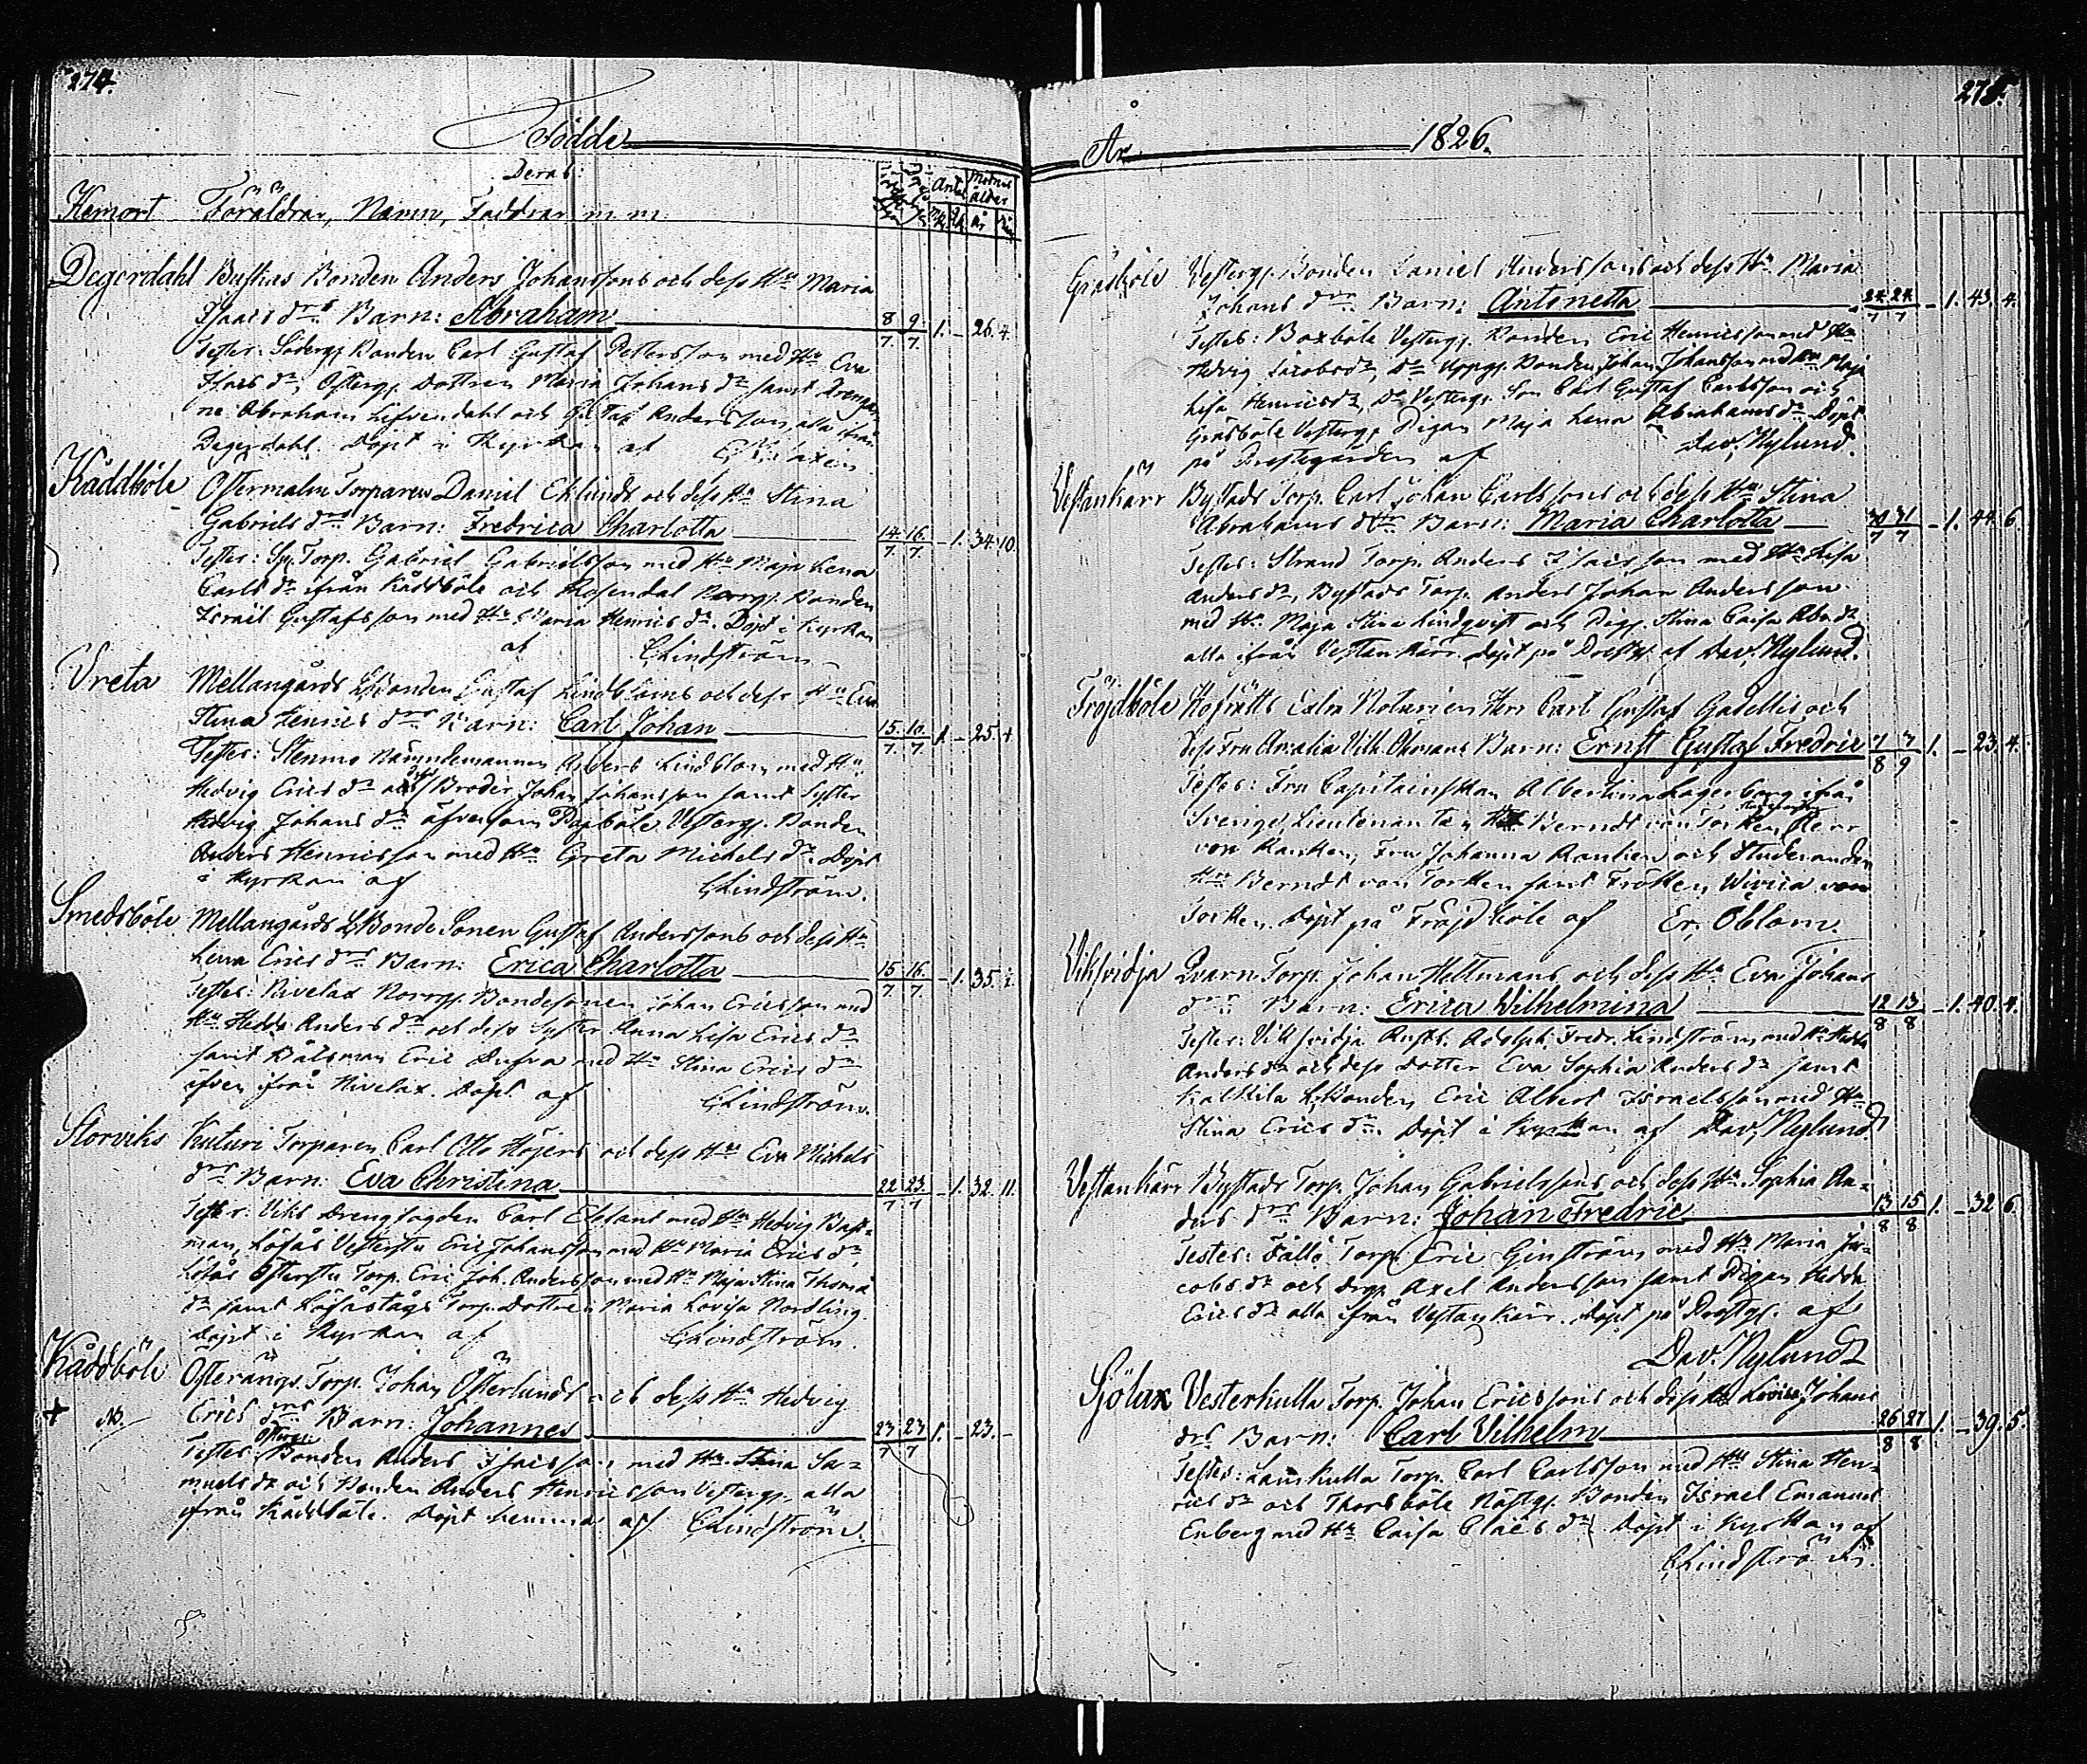 274.
Födde
Deras:
Hemort Föräldrar, Namn, Faddrar m. m.
Antal Modrens ålder
Mk. Qk. år
Degerdahl Bonden Anders Johanssons och dess Hu Maria
Isaacs drs Barn: Abraham 8/7 9/7 1. - 26. 4.
Testes: Södergs Bonden Carl Gustaf Pettersson med Hu Eva
Isacs dr, Östergs Dottren Maria Johans dr samt Drengar
ne Abraham Löfvendahl och Gustaf Andersson, alla ifrån
Degerdahl. Döpt i Kyrkan af
Kåddböle Östermalm Torparen Daniel Eklunds och dess Hu Stina
Gabriels drs Barn: Fredrica Charlotta 14/7 16/7 - 1. 34. 10.
Testes: Torp. Gabriel Gabrielsson med Hu Maja Lena
Carls dr ifrån Kåddböle och Rosendal Norrgs Bonden
Israel Gustafsson med Hu Maria Henrics dr. Döpt i Kyrkan
af CLindström
Vreta Mellangårds Bonden Gustaf Lindbloms och dess Hu Eva
Stina Henrics drs Barn: Carl Johan 15/7 16/7 1. - 25. 4.
Testes: Stenmo Nämndemannen Anders Lindblom med Hu
Hedvig Erics dr och Broder Johan Johansson samt Syster
Hedvig Johans dr äfvensom Daxböle Vestergs. Bonden
Anders Henricsson med Hu Greta Michels dr. Döpt
i Kyrkan af CLindström.
Smedsböle Mellangårds LBonde Sonen Gustaf Anderssons och dess Hu
Lena Erics drs Barn: Erica Charlotta 15/7 16/7 - 1. 35.
Testes: Nivelax Norrgs. Bondesonen Johan Ericsson med
Hu Hedda Anders dr och dess Syster Anna Lisa Erics dr
samt Båtsman Eric Dufva med Hu Stina Erics dr
äfven ifrån Nivelax. Döpt af CLindström.
Storviks Kuturi Torparen Carl Otto Höjers och dess Hu Eva Michels
drs Barn: Eva Christina 22/7 23/7 - 1. 32. 11.
Testes: Viks Drengfogden Carl Elefant med Hu Hedvig Bast-
man, Löfås Eric Johansson med Hu Maria Erics dr,
Löfås Torp. Eric Joh. Andersson med Hu Maja Stina Thomæ
dr samt Torp. Dottren Maria Lovisa Nordling.
Döpt i Kyrkan af CLindström.
Kåddböle Österängs Torp. Johan Österlunds och dess Hu Hedvig
+ Erics drs Barn: Johannes 23/7 23/7 1. - 23. -
Testes: Östergs Bonden Anders Isacsson med Hu Stina Sa-
muels dr och Bonden Anders Henricsson Vestergs. alla
ifrån Kåddböle. Döpt hemma af CLindström.
275.
År 1826.
Gräsböle Vestergs. Bonden Daniel Anderssons och dess Hu Maria
Johans drs Barn: Antonetta 24/7 24/7 - 1. 43. 4.
Testes: Boxböle Vestergs. Bonden Eric Henricsson med Hu
Hedvig Jacobs dr, Do Uppgs. Bonden Johan Johansson med Hu Maja
Lisa Henrics dr, Do Vestergs. Son Carl Gustaf Carlsson och
Gräsböle Vestergs. Pigan Maja Lena Abrahams dr. Döpt
på Prestegården af Dav. Nylund.
Vestankärr Bystads Torp. Carl Johan Carlssons och dess Hu Stina
Abrahams drs Barn: Maria Charlotta 30/7 31/7 - 1. 44. 6.
Testes: Strand Torp. Anders Isacsson med Hu Lisa
Anders dr, Bystads Torp. Anders Johan Andersson
med Hu Maja Stina Lindqvist och Pig. Stina Caisa Abr. dr
alla ifrån Vestankärr. Döpt på Prestg. af Dav. Nylund.
Fröjdböle Hofrätts Extra Notarien Herr Carl Gustaf Gadellis och
dess Fru Amalia Vilh. Öhmans Barn: Ernst Gustaf Fredric 7/8 7/9 1. - 23. 4.
Testes: Fru Capitainskan Albertina Lagerborg ifrån
Sverige, Lieutenanten Hr Berndt von Torken, Herr
von Rancken, Fru Johanna Rancken och Studeranden
Hrr Berndt von Torken samt Fröken Wivica von
Torken. Döpt på Fröjdböle af Er. Öblom.
Viksvidja Qvarn Torp. Johan Hellmans och dess Hu Eva Johans
drs Barn: Erica Wilhelmina 12/8 13/8 - 1. 40. 4.
Testes: Viksvidja Rusth. Adolph Fredr. Lindström med Hu Hedda
Anders dr och dess Dotter Eva Sophia Anders dr samt
Kalkila LBonden Eric Albert Israelsson med Hu
Stina Erics dr. Döpt i Kyrkan af Dav. Nylund.
Vestankärr Bystads Torp. Johan Gabrielssons och dess Hu Sophia An-
ders drs Barn: Johan Fredric 13/8 15/8 1. - 32. 6.
Testes: Fällö Torp. Eric Ginström med Hu Maria Ja-
cobs dr och Drg. Axel Andersson samt Pigan Hedda
Erics dr alla ifrån Vestankärr. Döpt på Prestg. af
Dav. Nylund
Sjölax Vesterkulla Torp. Johan Ericssons och dess Hu Lovisa Johans
drs Barn: Carl Vilhelm 26/8 27/8 1. - 39. 5.
Testes: Lamkulla Torp. Carl Carlsson med Hu Stina Hen-
rics dr och Thorsböle Röstgs. Bonden Israel Emanuel
Enberg med Hu Caisa Claes dr. Döpt i Kyrkan af
CLindström.